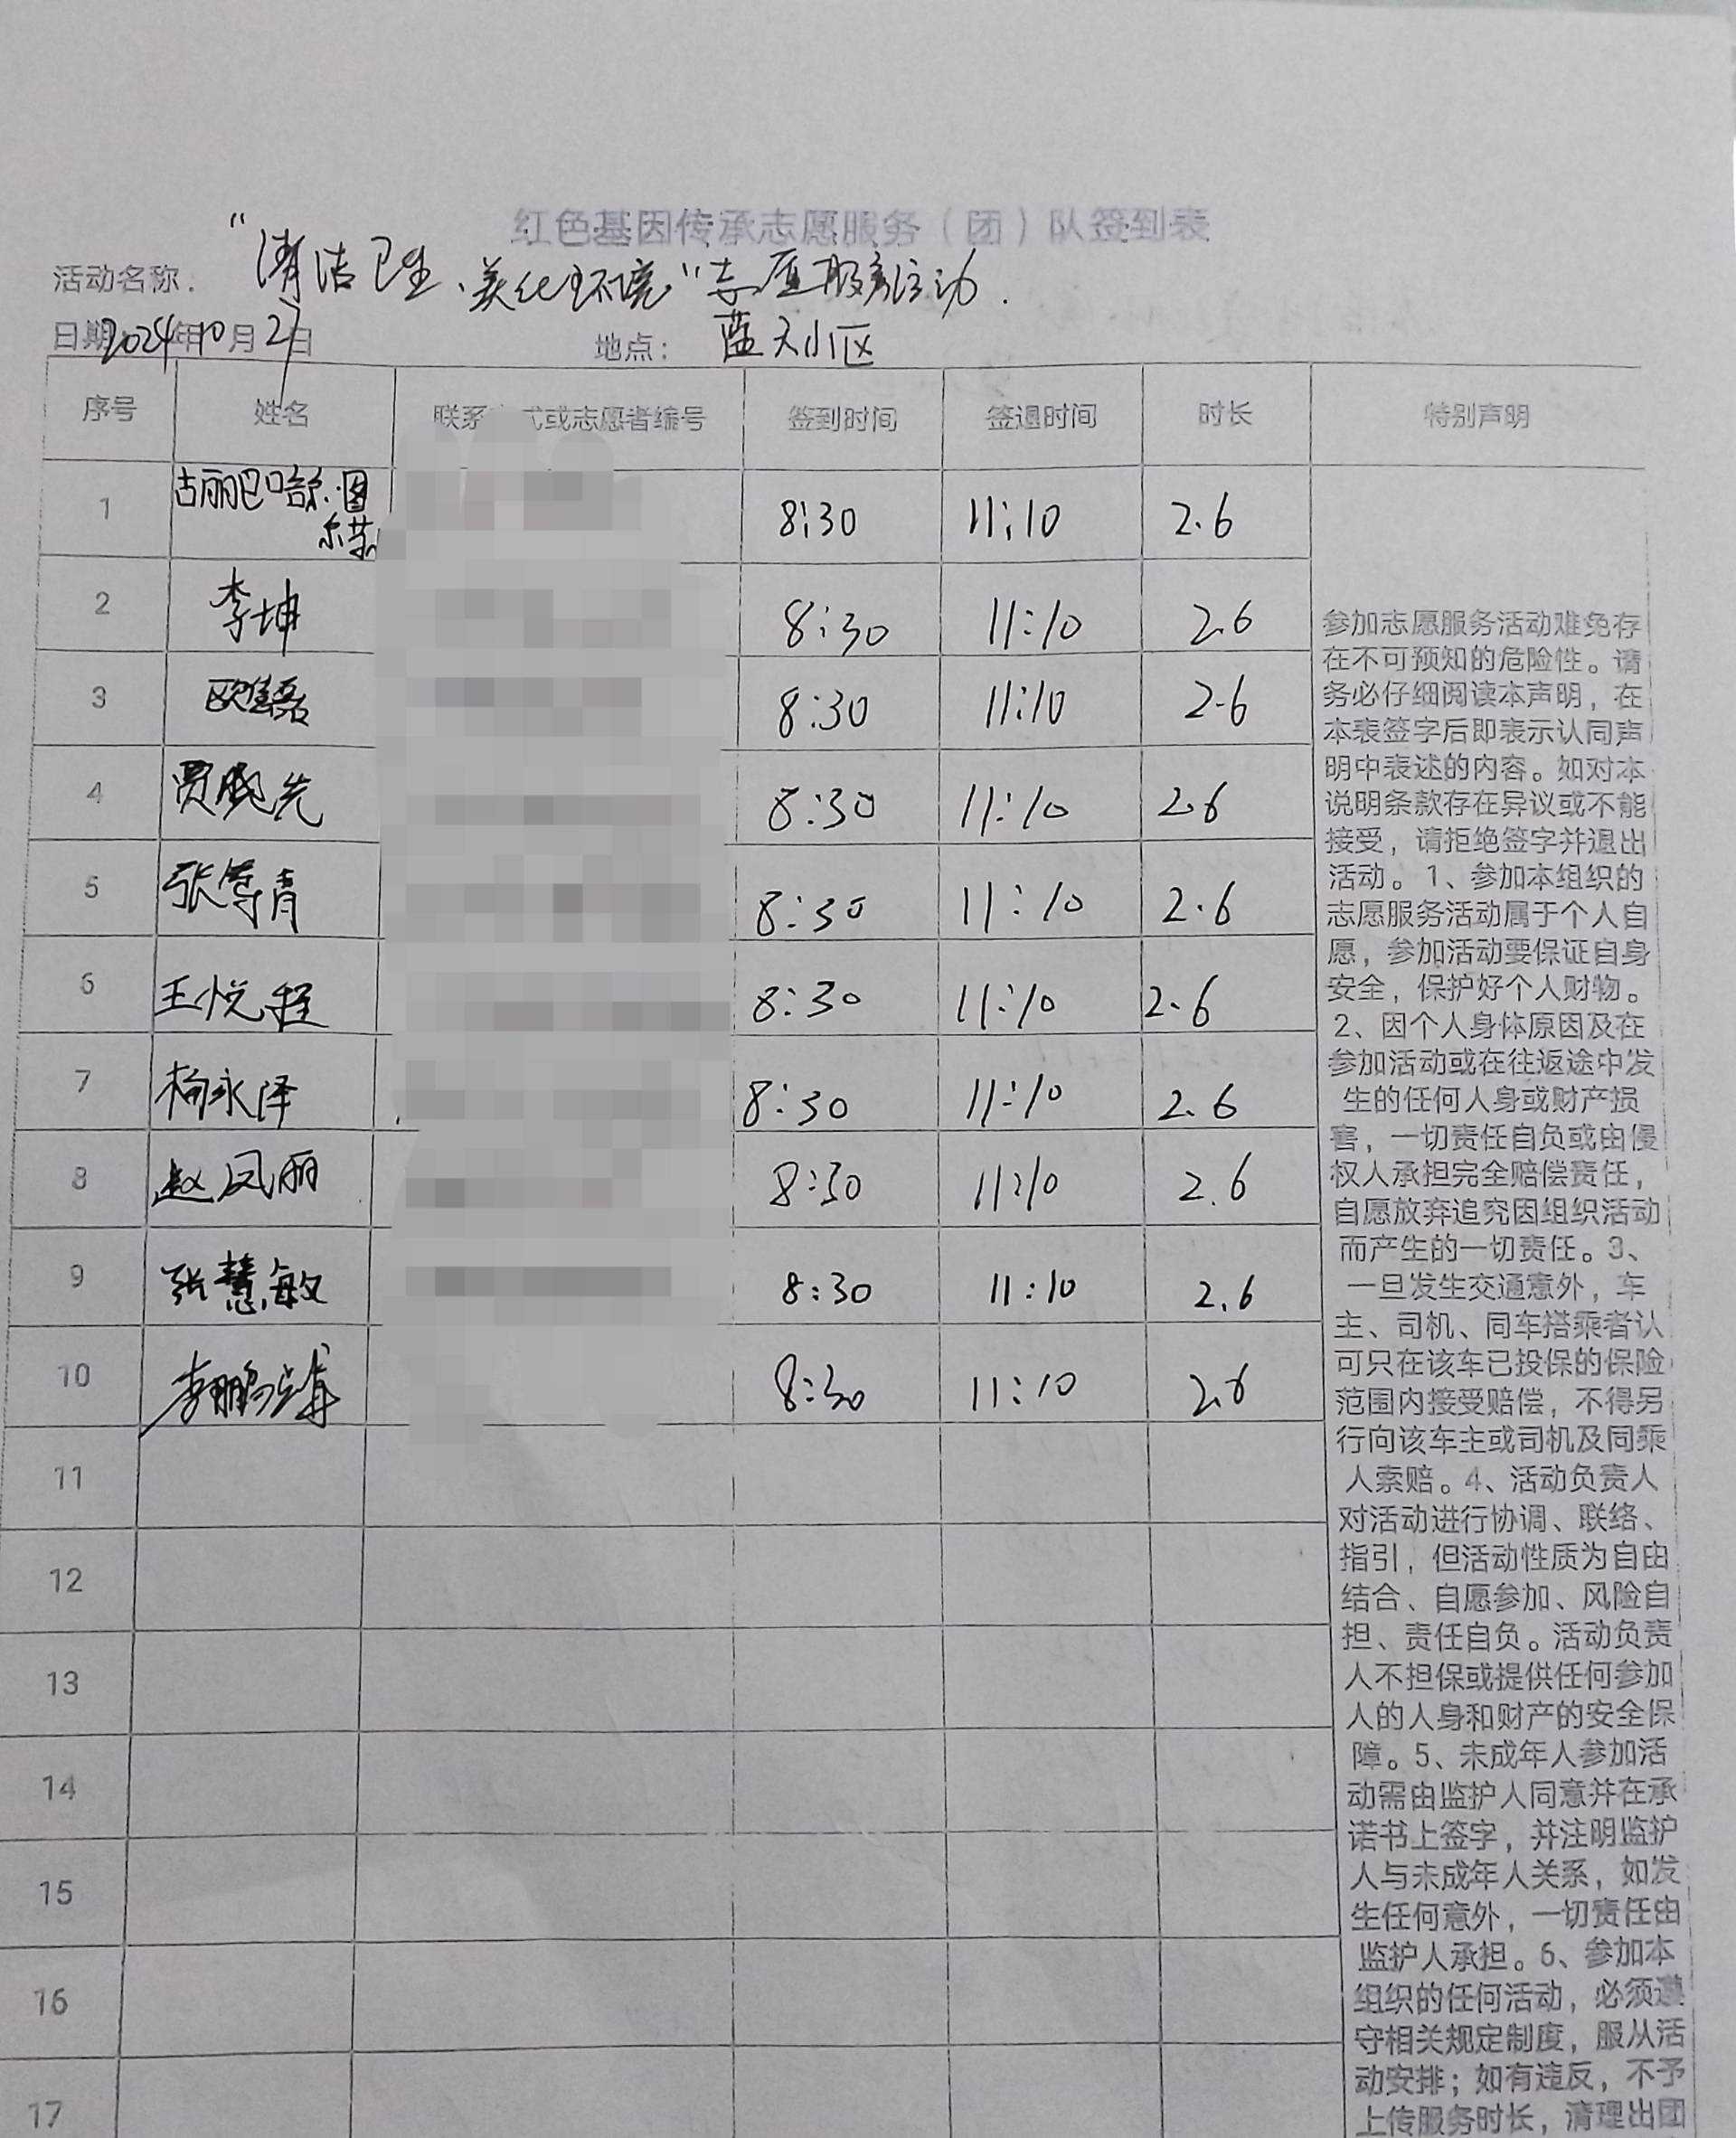 红色基因传承志愿服务（团）队签到表
活动名称：“清洁卫生、美化环境”志愿服务活动.
日期2024年10月27日 地点：蓝天小区
序号 姓名 联系 式或志愿者编号 签到时间 签退时间 时长 特别声明
1 古丽巴哈尔·图尔荪 8:30 11:10 2.6
2 李坤 8:30 11:10 2.6
3 8:30 11:10 2.6
4 贾晓先 8:30 11:10 2.6
5 张 青 8:30 11:10 2.6
6 王悦程 8:30 11:10 2.6
7 杨永泽 8:30 11:10 2.6
8 赵凤丽 8:30 11:10 2.6
9 张慧敏 8:30 11:10 2.6
10 李鹏 8:30 11:10 2.6
11
12
13
14
15
16
17
参加志愿服务活动难免存
在不可预知的危险性。请
务必仔细阅读本声明，在
本表签字后即表示认同声
明中表述的内容。如对本
说明条款存在异议或不能
接受，请拒绝签字并退出
活动。1、参加本组织的
志愿服务活动属于个人自
愿，参加活动要保证自身
安全，保护好个人财物。
2、因个人身体原因及在
参加活动或在往返途中发
生的任何人身或财产损
害，一切责任自负或由侵
权人承担完全赔偿责任，
自愿放弃追究因组织活动
而产生的一切责任。3、
一旦发生交通意外，车
主、司机、同车搭乘者认
可只在该车已投保的保险
范围内接受赔偿，不得另
行向该车主或司机及同乘
人索赔。4、活动负责人
对活动进行协调、联络、
指引，但活动性质为自由
结合、自愿参加、风险自
担、责任自负。活动负责
人不担保或提供任何参加
人的人身和财产的安全保
障。5、未成年人参加活
动需由监护人同意并在承
诺书上签字，并注明监护
人与未成年人关系，如发
生任何意外，一切责任由
监护人承担。6、参加本
组织的任何活动，必须遵
守相关规定制度，服从活
动安排；如有违反，不予
上传服务时长，清理出团